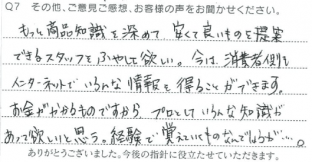 Q7 その他、ご意見ご感想、お客様の声をお聞かせください。
もっと商品知識を深めて、安くて良いものを提案
できるスタッフをふやして欲しい。今は、消費者側も
インターネットでいろんな情報を得ることができます。
お金がかかるものですから、プロとしていろんな知識が
あって欲しいと思う。経験で覚えていくものなんでしょうが…。
ありがとうございました。今後の指針に役立たせていただきます。